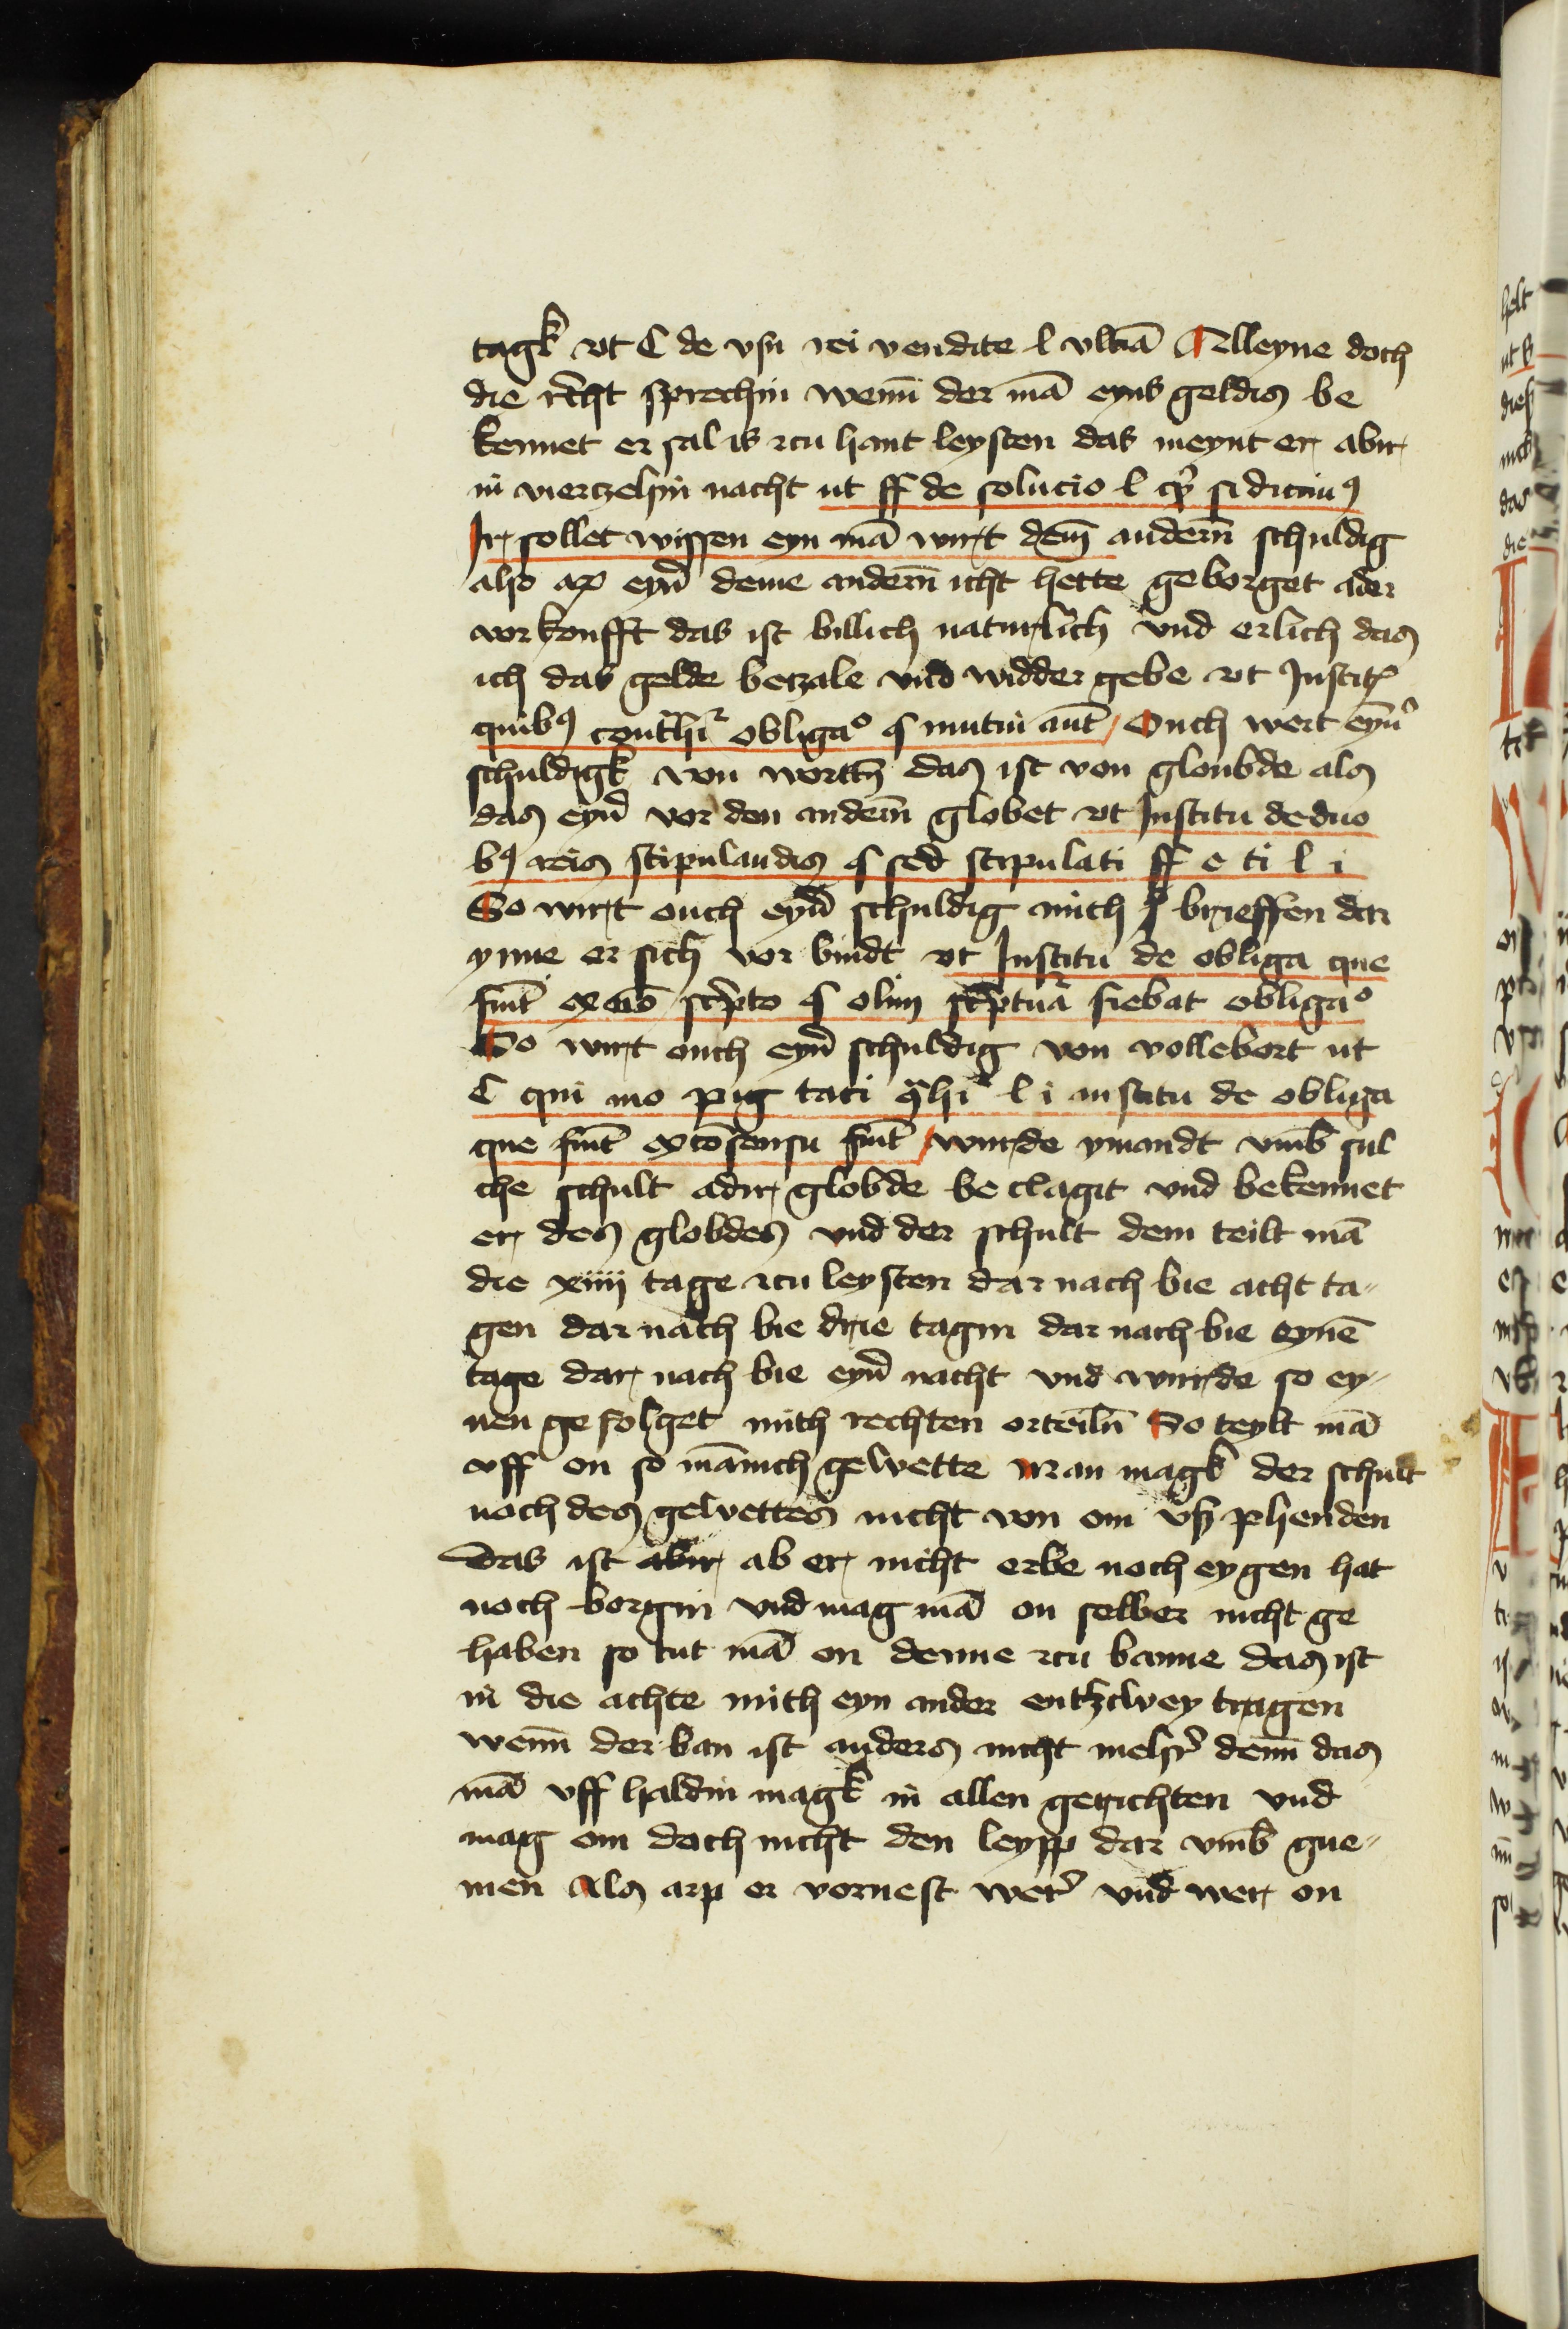 tagk vt C de vsu rei vendite l vltiā Alleyne doch
die recht sprechin wenn̄ der mā eyns geldis be
kennet er sal is zcu hant leysten das meynt er abir
in vierczehin nacht ut ff de solucio l
Ir sollet wissen eyn mā wirt dem̄ andern̄ schuldig
also ap eyn̄ deme andern̄ icht hette geborget ader
vorkoufft das ist billich naturlich vnd erlich das
ich das gelde beczale vnd widder gebe vt Instit
quibꝯ obligaº mutui aut̄ Ouch wert eyn̄
schuldigk von das ist von gloubde als
das eyn̄ vor den andern̄ globet vt Institu de duo
bꝯ reis stipulandis sed stipulati ff e ti l i
So wirt ouch eyn̄ schuldig mith brieffen dar
ynne er sich vor bindt vt Institu de obliga que
fiūt scrͥpto olim scrͥptura fiebat obligaº
So wirt ouch eyn̄ schuldig von vollebort ut
C qui mo pig taci l i institu de obliga
que fiūt ex cōsensu fiūt wurde ymandt vmb̄ sul
che schult adir globde be clagit vnd bekennet
er des globdes vnd der schult dem teilt mā
die xiiii tage zcu leysten dar nach bie acht ta-
gen dar nach bie drie tagin dar nach bie eynē
tage dar nach bie eyn̄ nacht vnd wurde so ey-
nen gefolget mith rechten orteiln̄ So teylt mā
vff on so mānich gewette Man magk der schult
noch des gewettes nicht von om vß phenden
Das ist abir ab er nicht erbe noch eygen hat
noch borgin vnd mag mā on selber nicht ge
haben so tut mā on denne zcu banne das ist
in die achte mith eyn ander entzcwey tragen
wenn̄ der ban ist anders nicht mehr denn̄ das
mā vff haldin magk in allen gerichten vnd
mag om doch nicht den leypp dar vmb̄ gne-
men Als arp er vornest wer vnd wer on